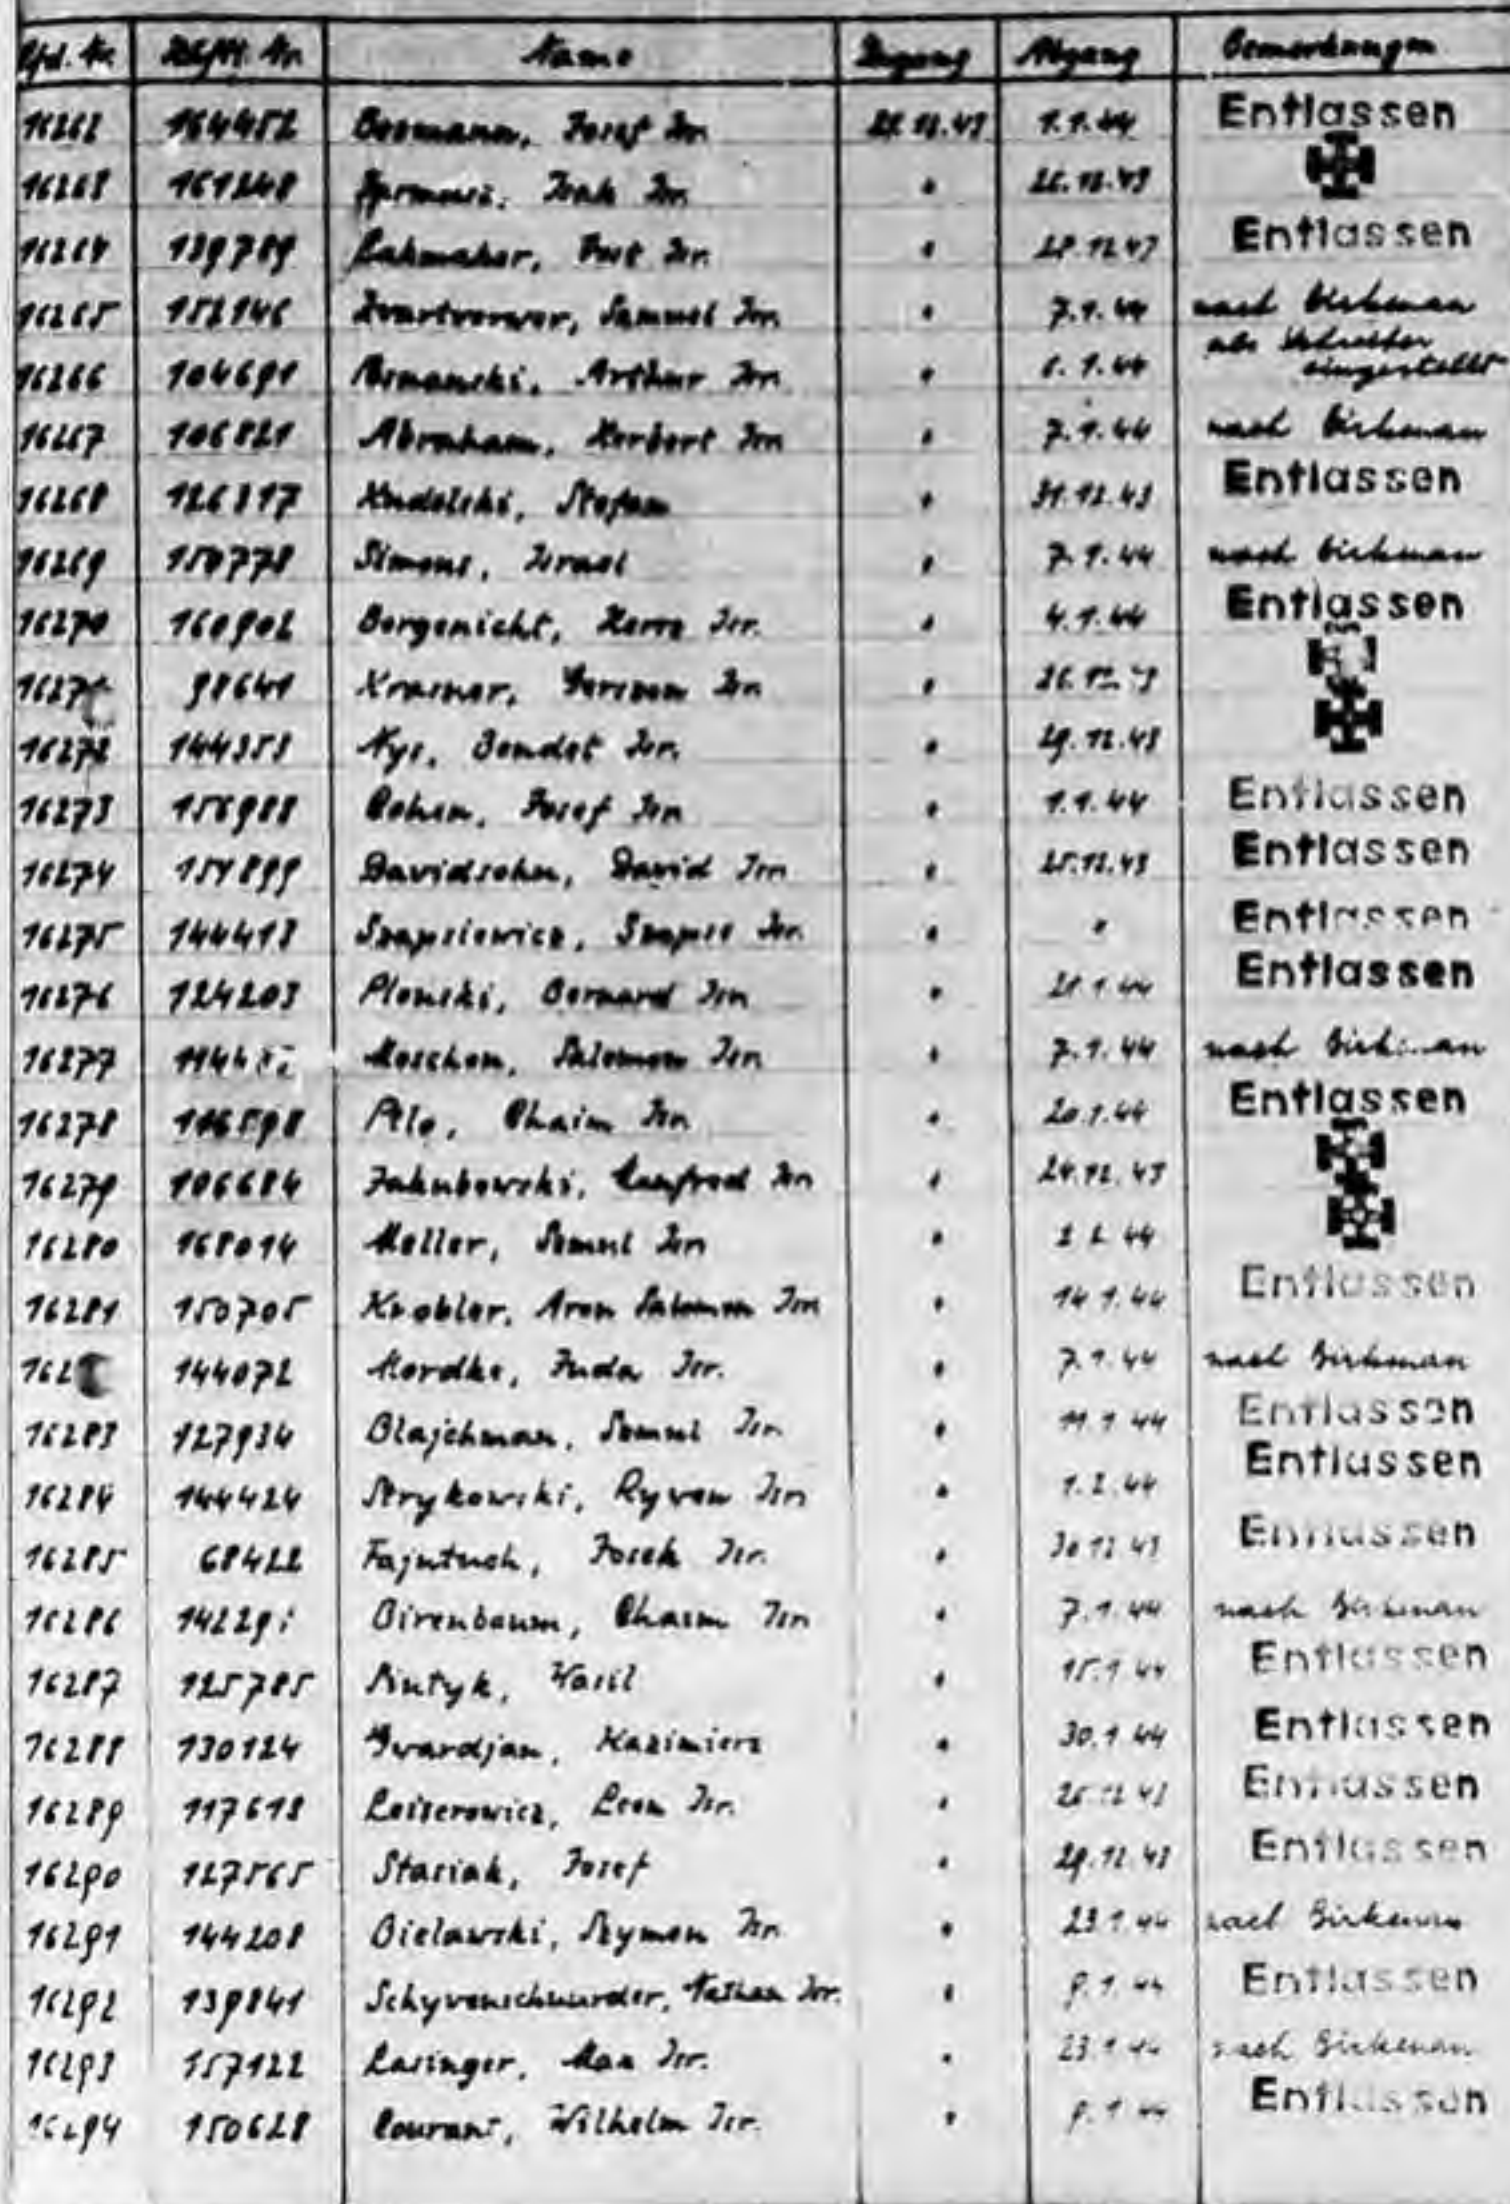 Lfd. Nr. Häftl. Nr. Name Zugang Abgang Bemerkungen
16262 164452 Bosmann, Josef Isr. 1.1.44 Entlassen
16263 161248 Isak Isr. 26.12.43
16264 139789 Isr. 28.12.43 Entlassen
16265 152146 Zwartverwer, Samuel Isr. " 7.1.44 nach Birkenau
16266 104691 Arthur Isr. " 6.1.44 als eingestellt
16267 106821 Abraham, Herbert Isr. " 7.1.44 nach Birkenau
16268 126317 Kudelski, Stefan " 31.12.43 Entlassen
16269 150778 Simons, Israel " 7.1.44 nach Birkenau
16270 160902 Borgenicht, Herz Isr. " 4.1.44 Entlassen
98641 Kramer, Isr. " 26.12.43
16272 144353 Nys, Bendet Isr. " 29.12.43
16273 156988 Cohen, Josef Isr. " 1.1.44 Entlassen
16274 151899 Davidsohn, David Isr. " 25.12.43 Entlassen
16275 144413 Szapsiewicz, Szapse Isr. " " Entlassen
16276 124203 Plonski, Bernard Isr. " 1.44 Entlassen
16277 Moschen, Salomon Isr. " 7.1.44 nach Birkenau
16278 116598 Pelo, Chaim Isr. " 20.1.44 Entlassen
16279 106684 Jakubowski, Manfred Isr. " 24.12.43
16280 168014 Meller, Samul Isr. " 44
16281 150705 Knobler, Aron Salomon Isr. " 14.1.44 Entlassen
144072 Mordke, Juda Isr. " 7.1.44 nach Birkenau
16283 127934 Blajchman, Samul Isr. " 11.1.44 Entlassen
16284 144424 Strykowski, Rywen Isr. " 1.2.44 Entlassen
16285 68422 Fajntuch, Josek Isr. " 30.12.43 Entlassen
16286 Birenbaum, Chaim Isr. " 7.1.44 nach Birkenau
16287 125785 Wasil " 15.1.44 Entlassen
16288 130124 Gwardjan, Kazimierz " 30.1.44 Entlassen
16289 117618 Leiserowicz, Leon Isr. " 12.43 Entlassen
16290 127565 Stasiak, Josef " 29.12.43 Entlassen
16291 144208 Bielawski, Szymon Isr. " 23.1.44 nach Birkenau
16292 139841 Schyvenschuurder, Nathan Isr. " 9.1.44 Entlassen
16293 157122 Lasinger, Max Isr. " 23.1.44 nach Birkenau
16294 150628 Courant, Wilhelm Isr. " 9.1.44 Entlassen